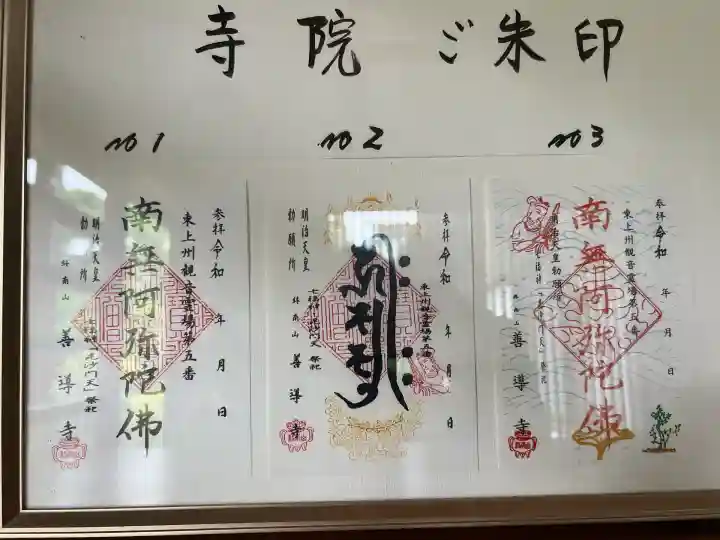 寺院 ご朱印
no 1
no 2
no 3
参拝 令和 年 月 日
東上州観音霊場第五番
南無阿弥陀佛
明治天皇
勅願所
七福神「毘沙門天」祭祀
善導寺
参拝 令和 年 月 日
東上州観音霊場第五番
明治天皇
勅願所
七福神「毘沙門天」祭祀
善導寺
参拝 令和 年 月 日
東上州観音霊場第五番
南無阿弥陀佛
明治天皇勅願所
善導寺